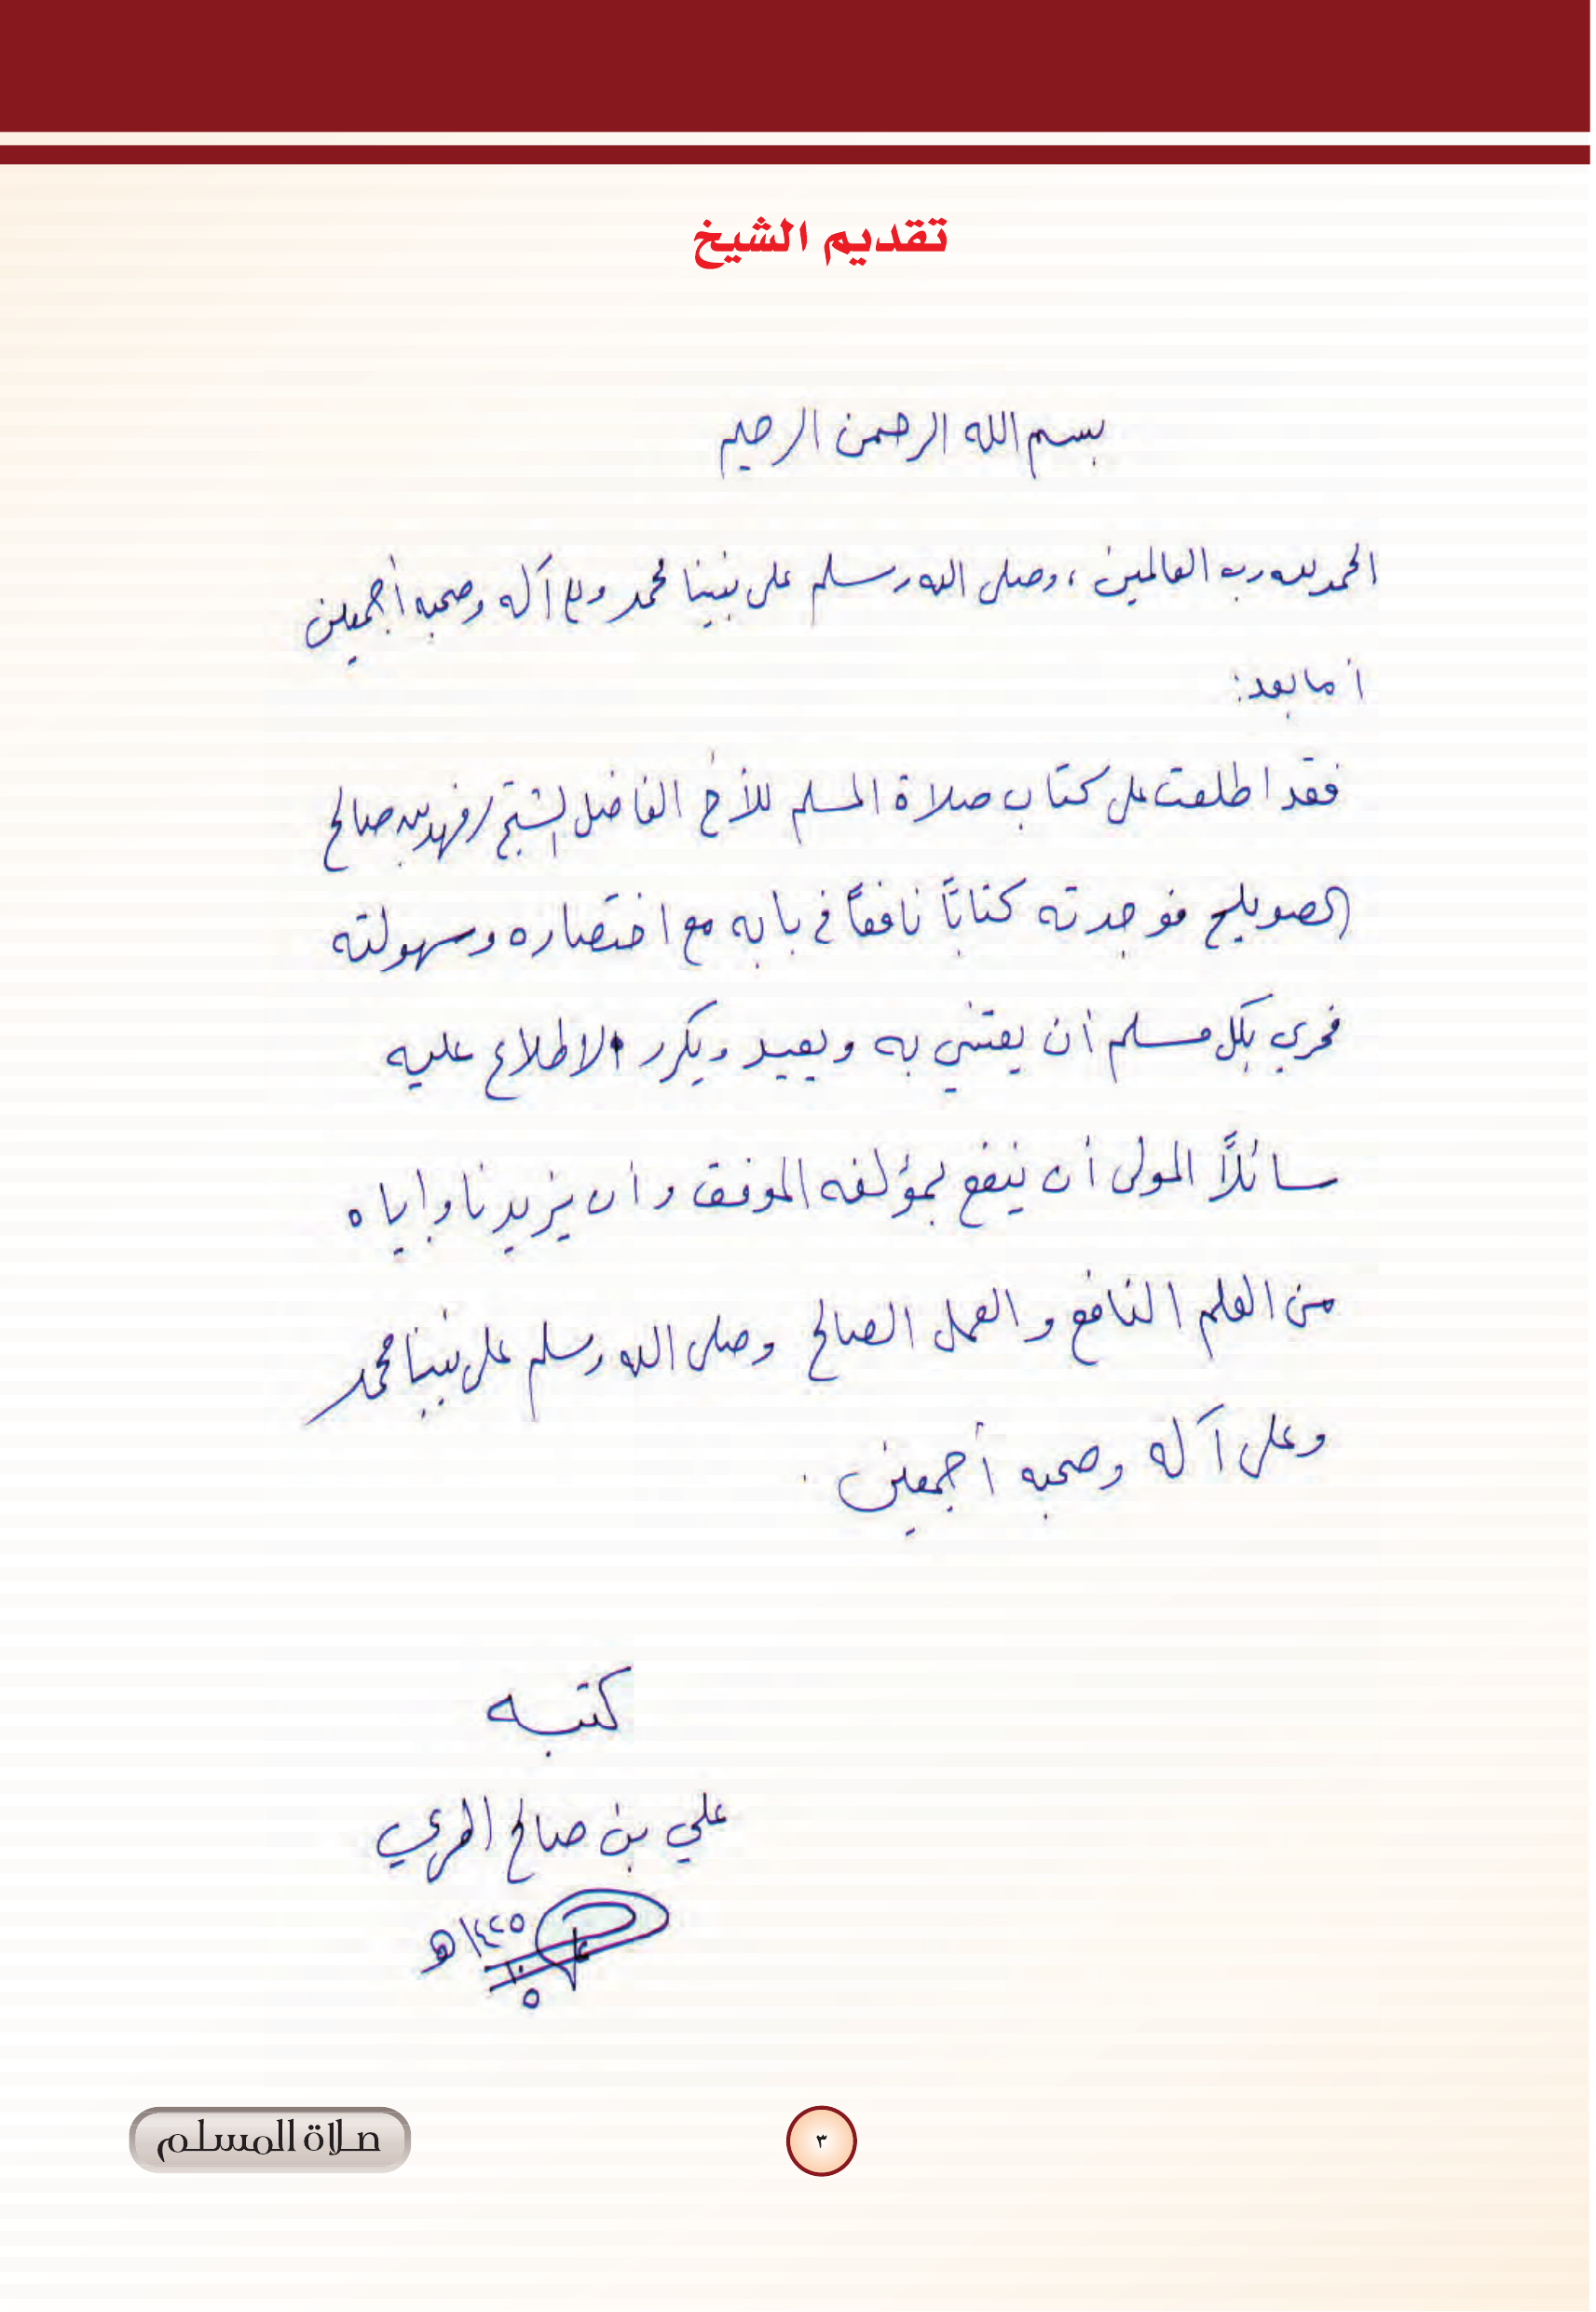 تقديم الشيخ
بسم الله الرحمن الرحيم
الحمد لله رب العالمين ، وصلى الله وسلم على نبينا محمد وعلى آله وصحبه أجمعين
أما بعد:
فقد اطلعت على كتاب صلاة المسلم للأخ الفاضل الشيخ / فهد بن صالح
الصويلح فوجدته كتابًا نافعًا في بابه مع اختصاره وسهولته
فحري بكل مسلم أن يعتني به ويعيد ويكرر الاطلاع عليه
سائلًا المولى أن ينفع بمؤلفه الموفق وأن يزيدنا وإياه
من العلم النافع والعمل الصالح وصلى الله وسلم على نبينا محمد
وعلى آله وصحبه أجمعين .
كتبه
علي بن صالح المري
١٤٢٥هـ
١٠
٥
صلاة المسلم
٣